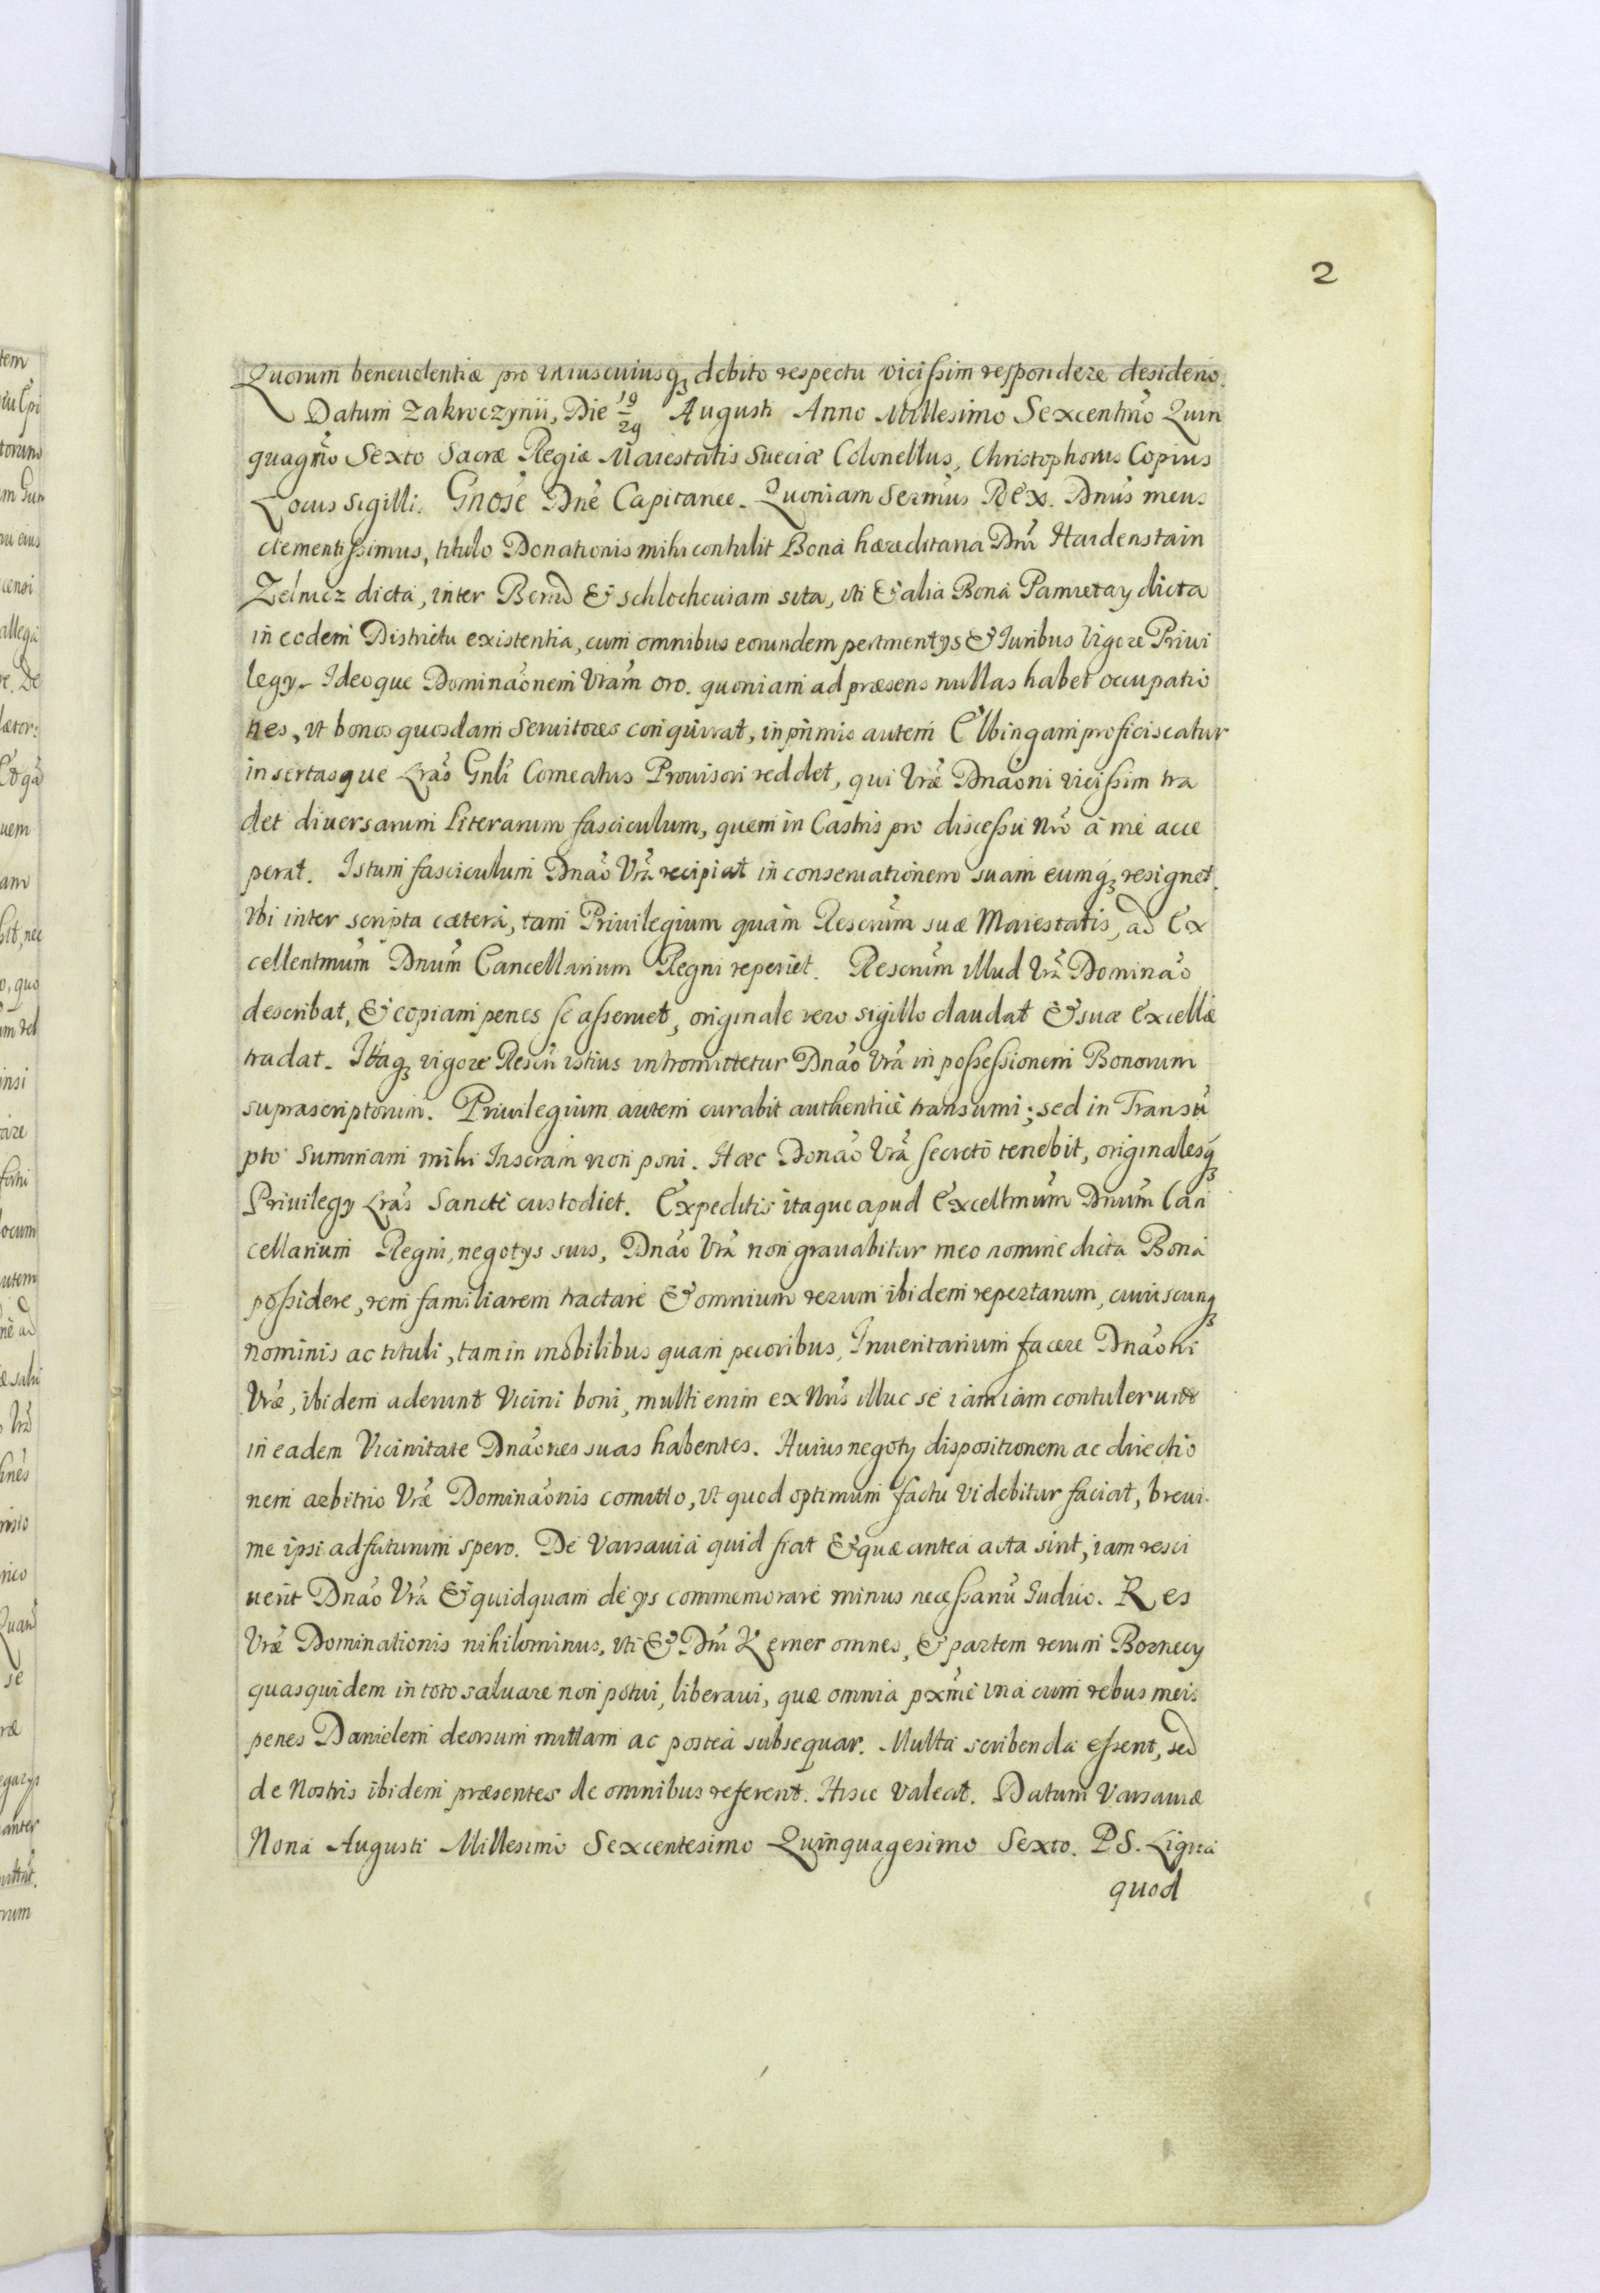 2
Quorum beneuolentiæ pro uniuscuiusq; debito respectu vicissim respondere desidero.
Datum Zakroczynii, Die 19/29 Augusti Anno Millesimo Sexcentmo Quin
quagmo Sexto Sacræ Regiæ Maiestatis Sueciæ Colonellus, Christophorus Copius
Locus sigilli. Gnose Dne Capitanee. Quoniam Sermus Rex. Dnus meus
clementissimus, titulo Donationis mihi contulit Bona hæreditaria Dni Hardenstain
Zelnicz dicta, inter Bernd & schlocheuiam sita, uti & alia Bona Pamietay dicta
in eodem Districtu existentia, cum omnibus eorundem pertinentys & Iuribus Vigore Priui
legy. Ideoque Dominaonem Vram oro. quoniam ad præsens nullas habet occupatio
nes, ut bonos quosdam Seruitores conquirat, inprimis autem Elbingam proficiscatur
insertasque Lras Gnli Comeatus Prouisori reddet, qui Vræ Dnaoni vicissim tra
det diuersarum literarum fasciculum, quem in Castris pro discessu nro a me acce
perat. Istum fasciculum Dnao Vra recipiat in conseruationem suam eumq; resignet.
Ubi inter scripta cætera, tam Privilegium quam Rescrum suæ Maiestatis, ad Ex
cellentmum Dnum Cancellarium Regni reperiet. Rescrum illud Vra Dominao
describat, & copiam penes se asseruet, originale vero sigillo claudat & suæ Excellæ
tradat. Itaq; vigore Rescri istius intromittetur Dnao Vra in possessionem Bonorum
suprascriptorum. Privilegium autem curabit authentice transumi; sed in Transu
pto summam mihi Inscram non poni. Hæc Donao Vra secreto tenebit, originalesq;
Privilegy Lras Sancte custodiet. Expeditis itaque apud Excellmum Dnum Can
cellarium Regni, negotys suis, Dnao Vra non grauabitur meo nomine dicta Bona
possidere, rem familiarem tractare & omnium rerum ibidem repertarum, cuiuscunq;
nominis ac tituli, tam in mobilibus quam pecoribus, Inuentarium facere Dnaoni
Vræ, ibidem aderunt Vicini boni, multi enim ex Nris illuc se iam iam contulerunt
in eadem Vicinitate Dnaones suas habentes. Huius negoty dispositionem ac directio
nem arbitrio Vræ Dominaonis comitto, ut quod optimum factu videbitur faciat, breui
me ipsi adfuturum spero. De Varsauia quid fiat & quæ antea acta sint, iam resci
uerit Dnao Vra & quidquam de ys commemorare minus necessariu Iudico. Res
Vræ Dominationis nihilominus, uti & Dni Kerner omnes, & partem rerum Bornecy
quas quidem in toto saluare non potui, liberaui, quæ omnia pxme una cum rebus meis
penes Danielem deorsum mittam ac postea subsequar. Multa scribenda essent, sed
de Nostris ibidem præsentes de omnibus referent. Hisce Valeat. Datum Varsauiæ
Nona Augusti Millesimo Sexcentesimo Quinquagesimo Sexto. PS. Ligna
quod